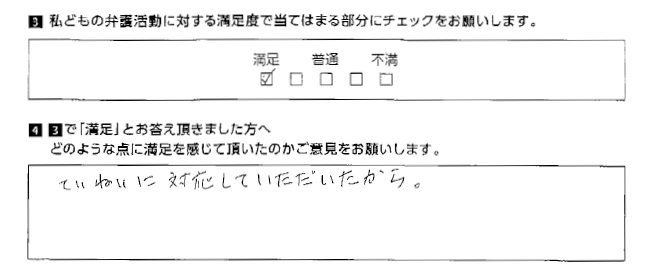 3 私どもの弁護活動に対する満足度で当てはまる部分にチェックをお願いします。
満足 普通 不満
☑ □ □ □ □
4 3で「満足」とお答え頂きました方へ
どのような点に満足を感じて頂いたのかご意見をお願いします。
ていねいに対応していただいたから。